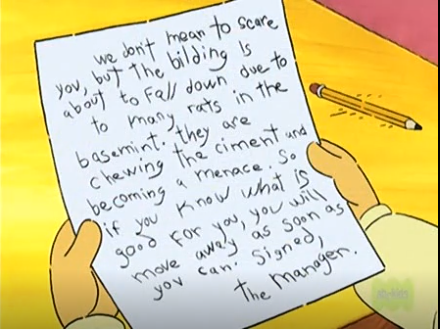 we don't mean to scare
you, but the bilding is
about to fall down due to
to many rats in the
basemint. they are
chewing the ciment and
becoming a menace. So
if you know what is
good for you, you will
move away as soon as
you can. Signed,
the manager.